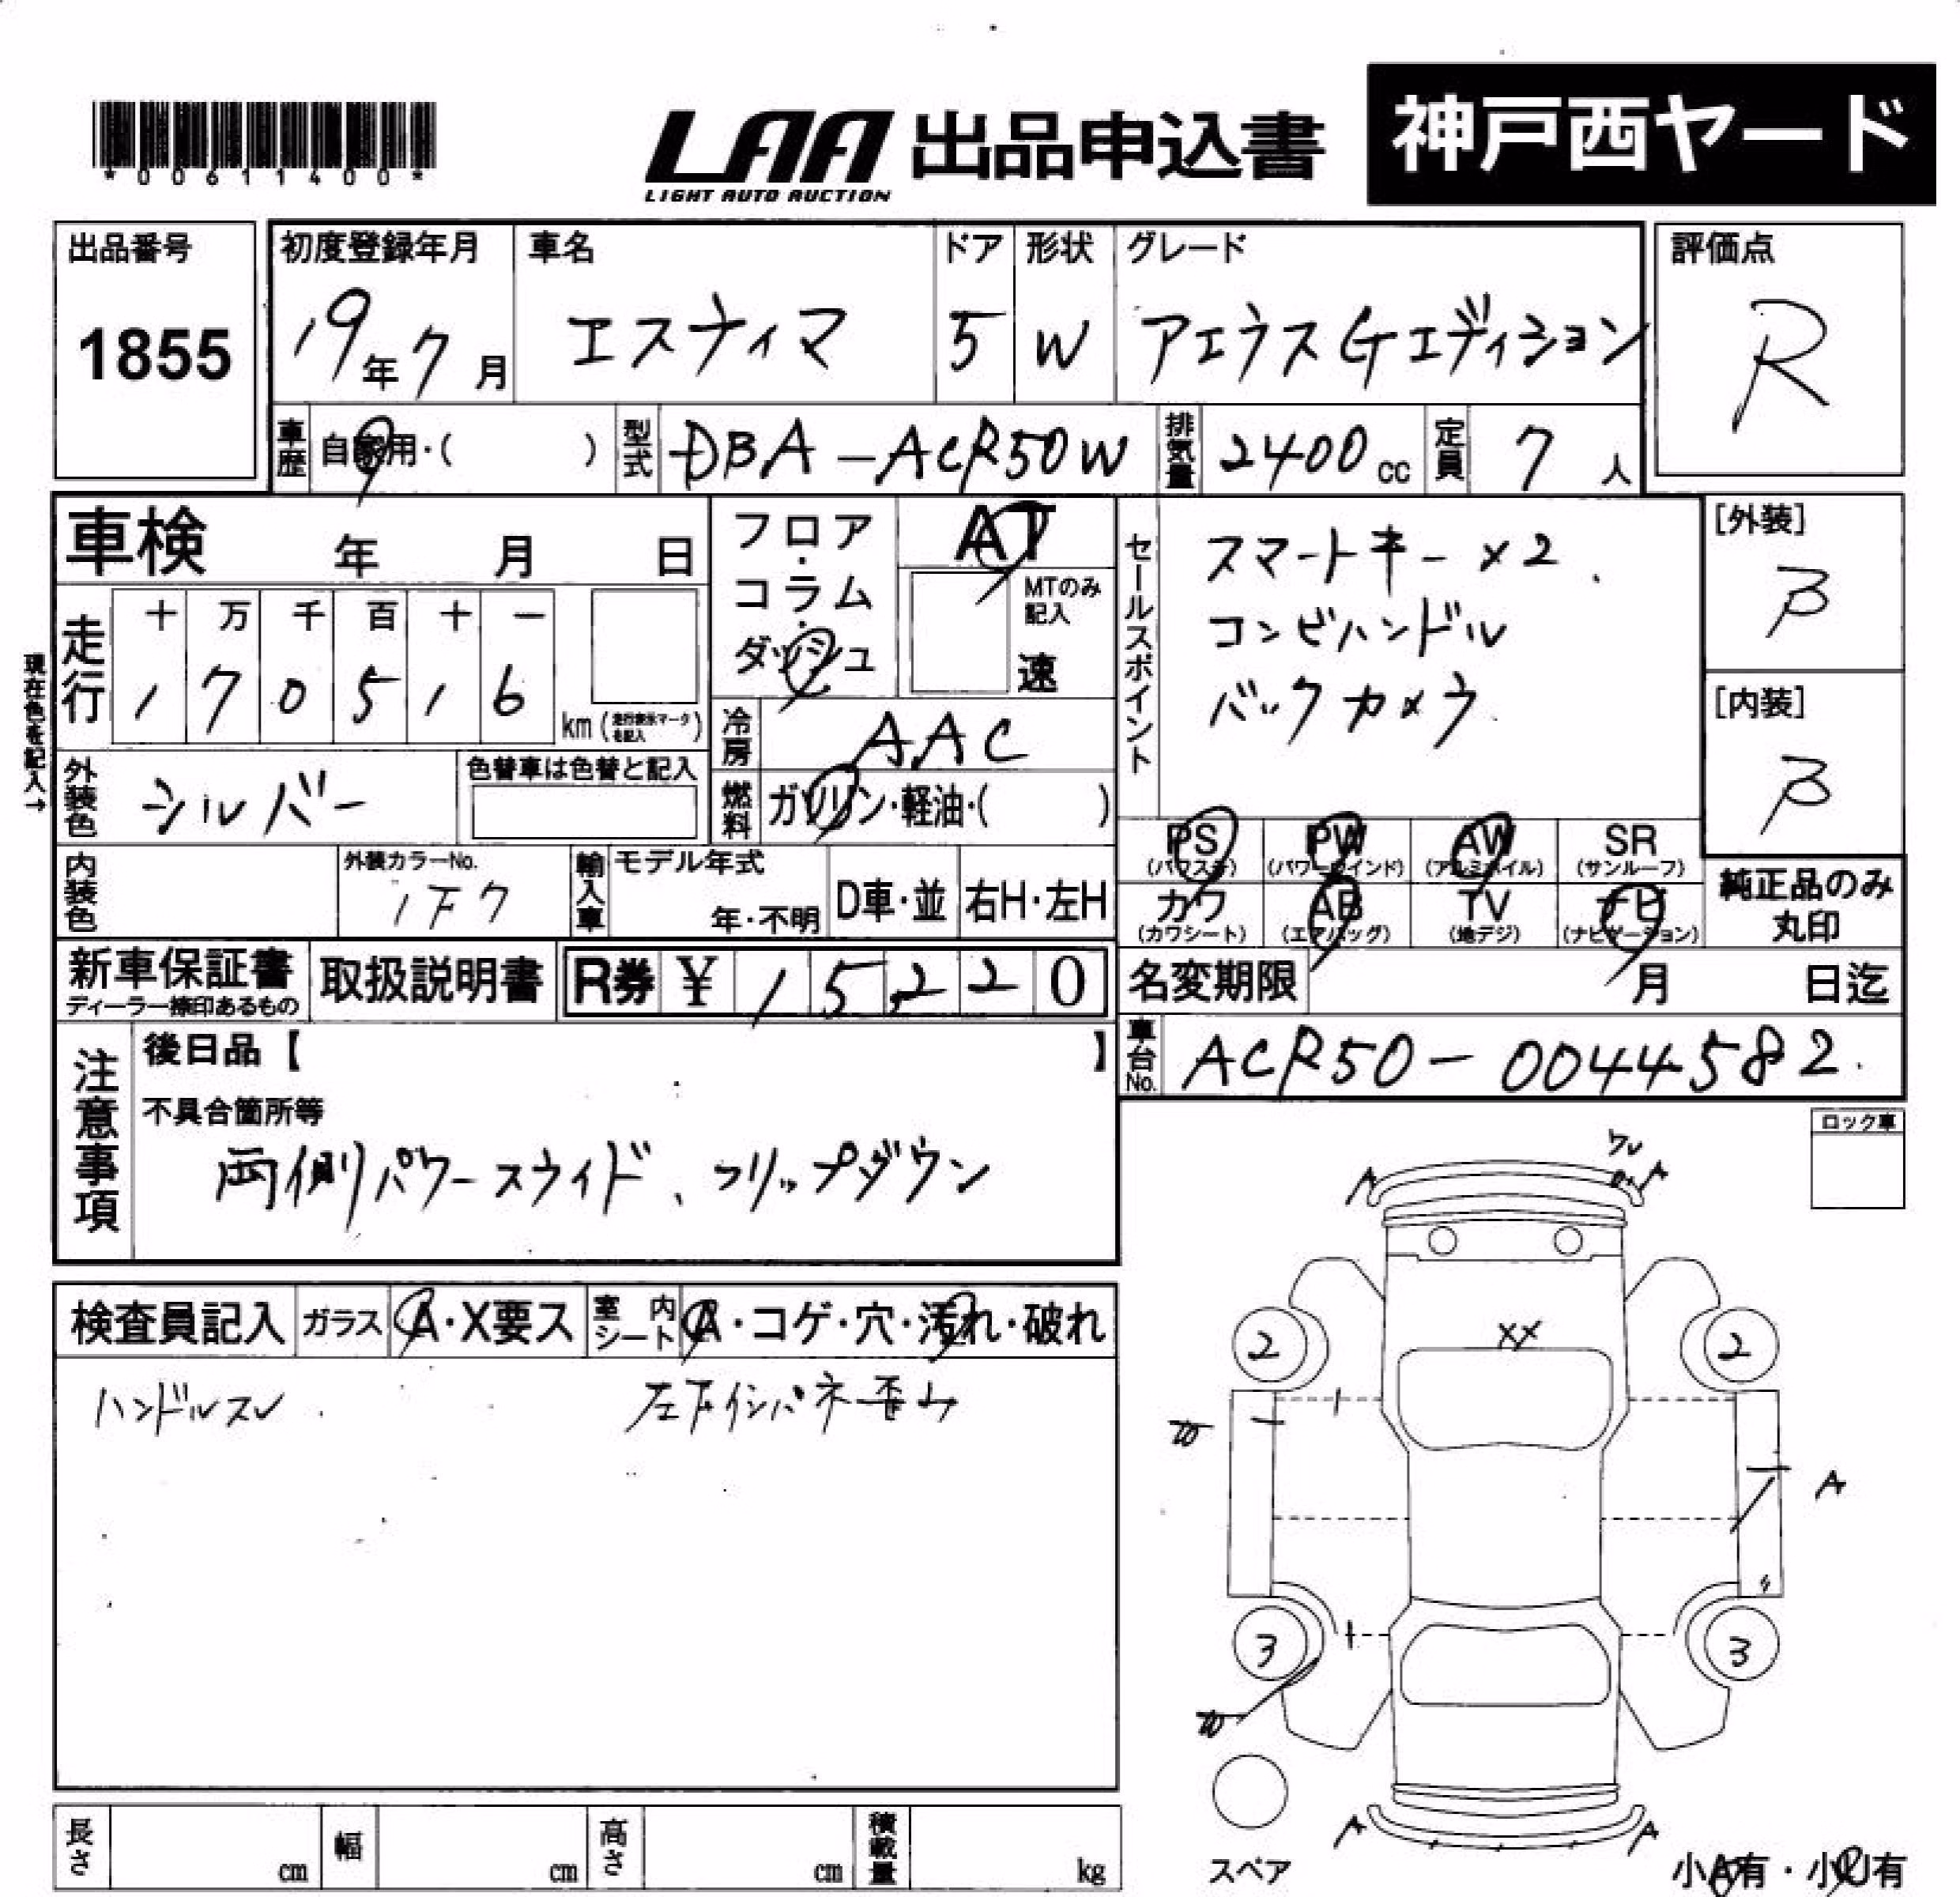 *00611400*
LAA 出品申込書 神戸西ヤード
LIGHT AUTO AUCTION
出品番号 1855
初度登録年月 19年7月
車名 エスティマ
ドア 5
形状 W
グレード アエラスGエディション
評価点 R
車歴 自家用・( )
型式 DBA-ACR50W
排気量 2400cc
定員 7人
車検 年 月 日
フロア・コラム・ダッシュ
AT
MTのみ記入
速
セールスポイント
スマートキー×2.
コンビハンドル
バックカメラ.
[外装] B
[内装] B
現在色を記入→
走行 十 万 千 百 十 一
1 7 0 5 1 6
km (走行表示マークを記入)
冷房 AAC
外装色 シルバー
色替車は色替と記入
燃料 ガソリン・軽油・( )
PS (パワステ) PW (パワーウインド) AW (アルミホイル) SR (サンルーフ)
カワ (カワシート) AB (エアバッグ) TV (地デジ) ナビ (ナビゲーション)
純正品のみ丸印
内装色
外装カラーNo. 1F7
輸入車 モデル年式 年・不明
D車・並 右H・左H
新車保証書 ディーラー捺印あるもの
取扱説明書
R券 ¥ 15,220
名変期限 月 日迄
車台No. ACR50-0044582.
注意事項
後日品【 】
不具合箇所等
両側パワースライド、フリップダウン
ロック車
検査員記入 ガラス A・X要ス 室内シート A・コゲ・穴・汚れ・破れ
ハンドルスレ.
左下インパネ歪ム
ワレ
A A
XX
2 2
A
3 3
A A
スペア
小A有・小U有
長さ cm 幅 cm 高さ cm 積載量 kg